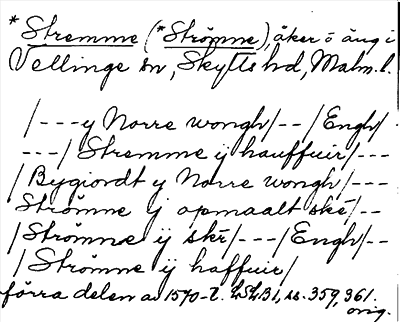 *Stremme (*Strömme), åker o äng i
Vellinge sn, Skytts hd, Malm. l.
/---y Norre wongh/--/Engh/
---/Stremme ÿ hauffuir/---
/Bygiordt y Norre wongh/---
Strömne ÿ opmaalt skē/--
/Strömne ÿ skē/---/Engh/--
/Strömne ÿ haffuir/
förra delen av 1570-t. LSLB1, ss. 359, 361.
orig.